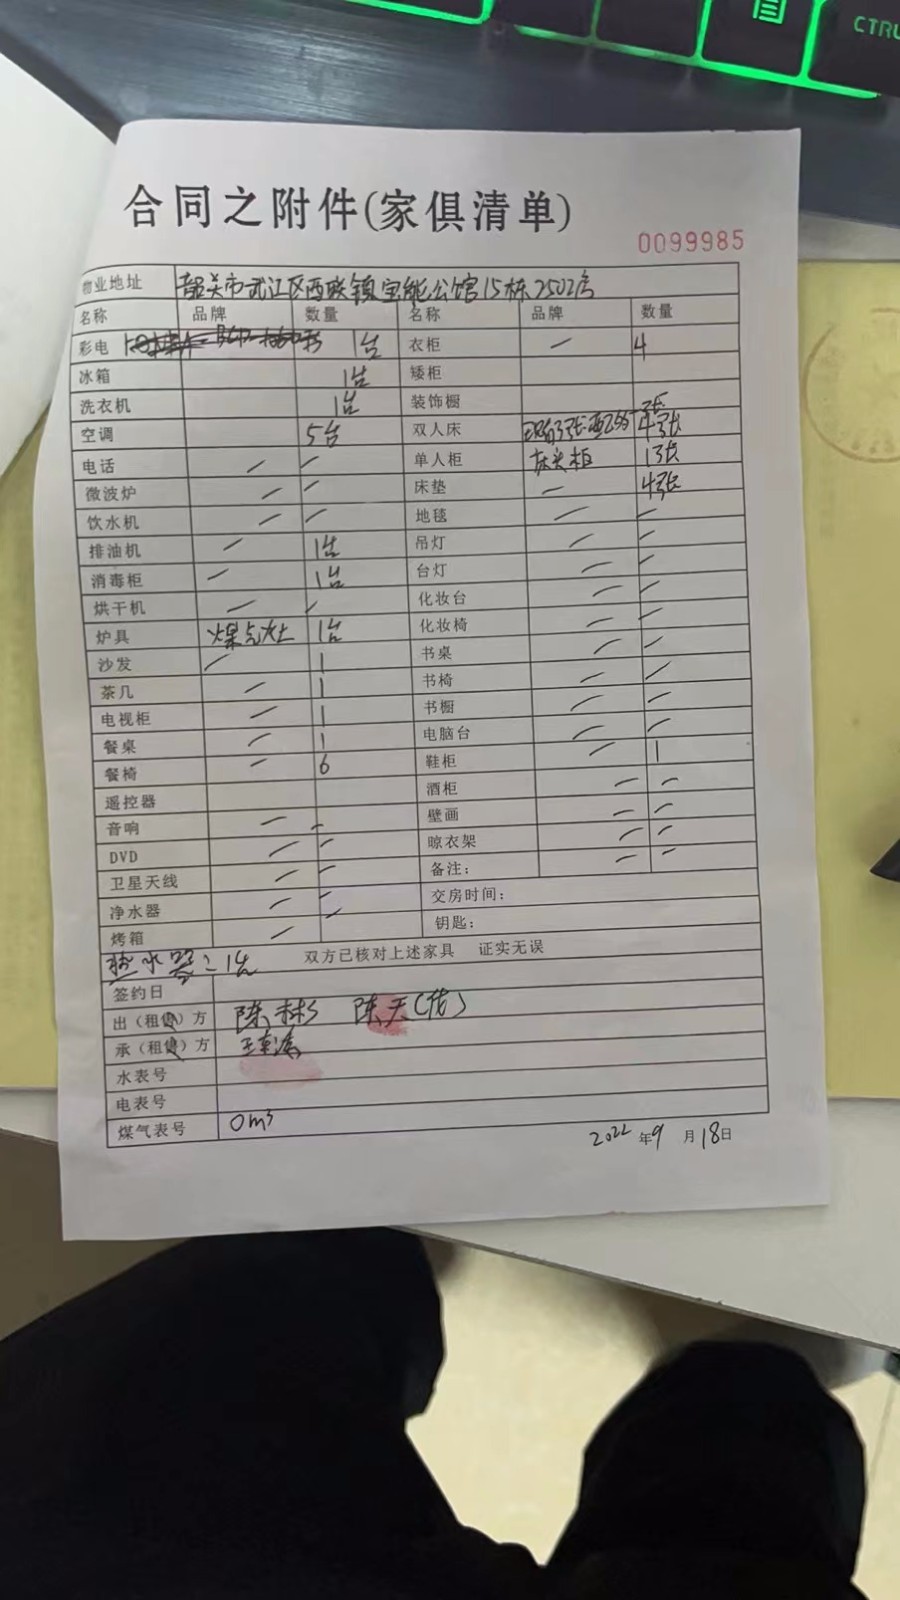 CTRL
合同之附件(家俱清单)
0099985
物业地址 韶关市武江区西联镇宝能公馆15栋2502房
名称 品牌 数量 名称 品牌 数量
彩电 1台 衣柜 — 4
冰箱 1台 矮柜
洗衣机 1台 装饰橱
空调 5台 双人床 4张
电话 — — 单人柜 床头柜 1张
微波炉 — — 床垫 — 4张
饮水机 — — 地毯 — —
排油机 — 1台 吊灯 — —
消毒柜 — 1台 台灯 — —
烘干机 — — 化妆台 — —
炉具 煤气灶 1台 化妆椅 — —
沙发 — 1 书桌 — —
茶几 — 1 书椅 — —
电视柜 — 1 书橱 — —
餐桌 — 1 电脑台 — —
餐椅 — 6 鞋柜 — 1
遥控器 酒柜 — —
音响 — — 壁画 — —
DVD — — 晾衣架 — —
卫星天线 — — 备注: — —
净水器 — — 交房时间:
烤箱 — — 钥匙:
热水器:1台 双方已核对上述家具 证实无误
签约日
出(租售)方 陈彬 陈天(代)
承(租售)方
水表号
电表号
煤气表号 0m³
2022年9月18日